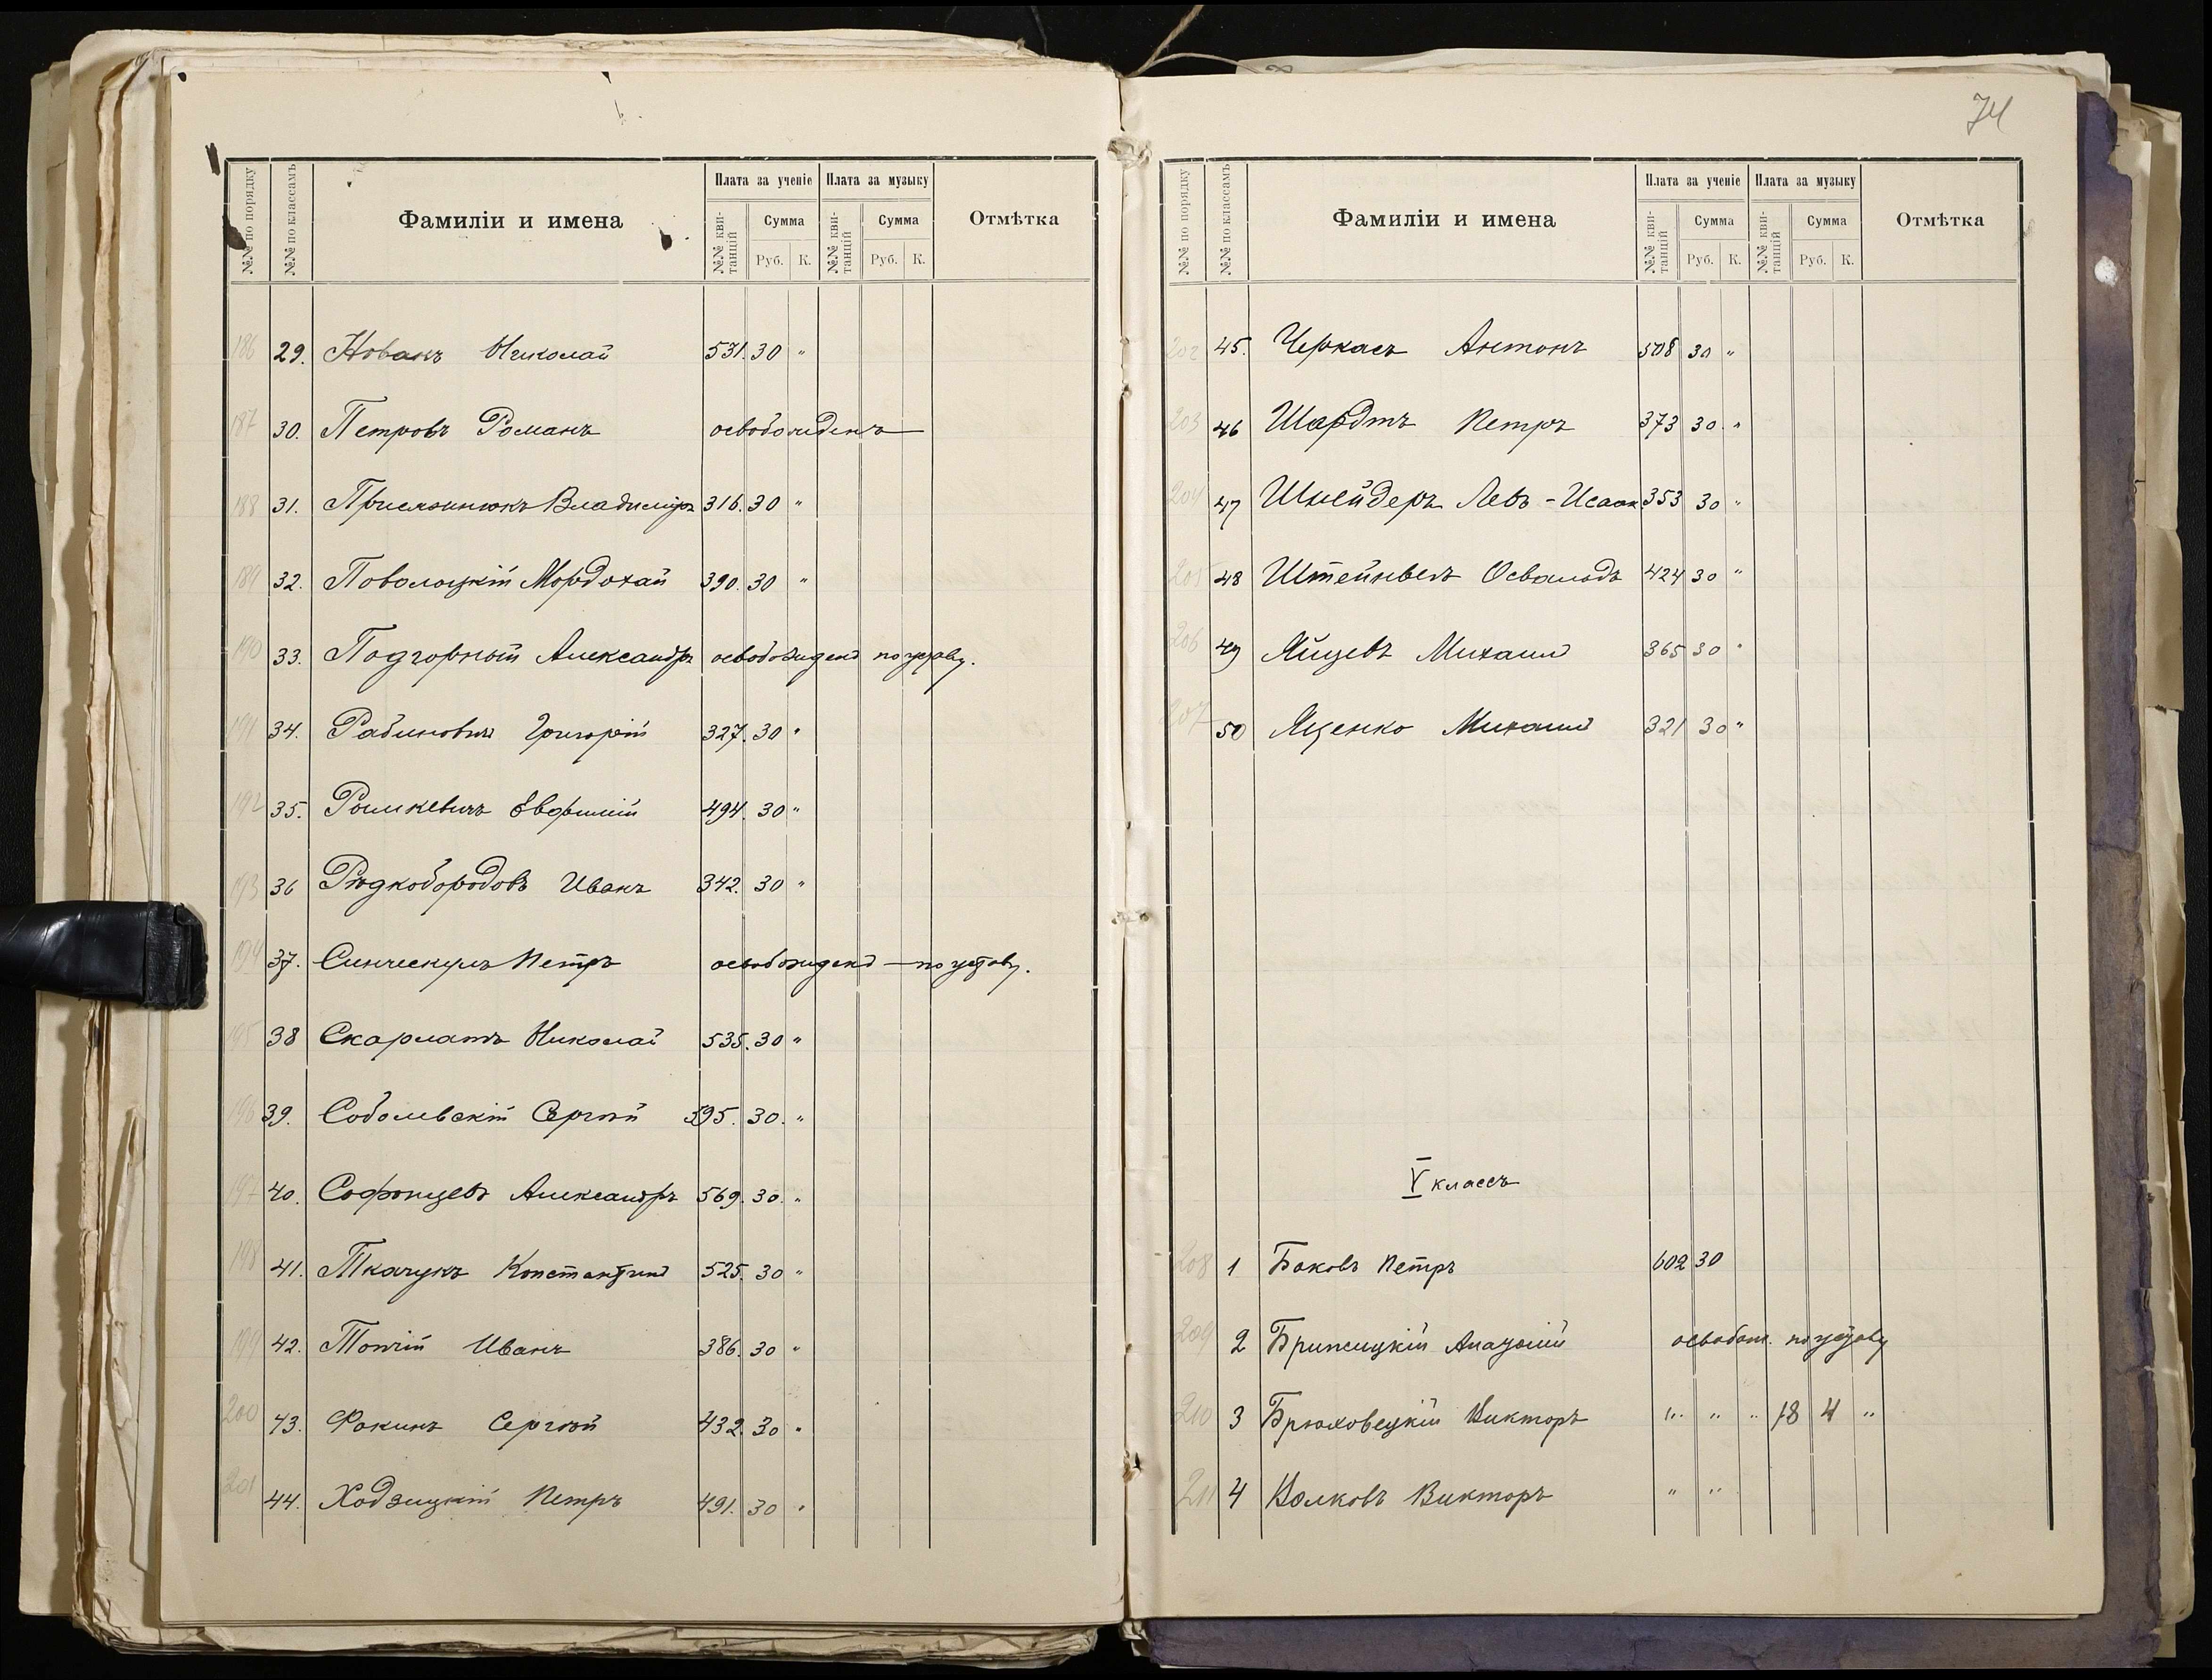 №№ по порядку №№ по классамъ Фамиліи и имена Плата за ученіе Плата за музыку Отмѣтка
№№ кви-танцій Сумма №№ кви-танцій Сумма
Руб. К. Руб. К.
186 29. Новакъ Николай 531. 30 "
187 30. Петровъ Романъ освобожденъ
188 31. Присяжнюкъ Владиміръ 316. 30 "
189 32. Поволоцкій Мордохай 390. 30 "
190 33. Подгорный Александръ освобожденъ по уставу.
191 34. Рабиновичъ Григорій 327. 30 "
192 35. Ромкевичъ Евфимій 494. 30 "
193 36 Рѣдкобородовъ Иванъ 342. 30 "
194 37. Петръ освобожденъ — по уставу.
195 38 Скарлатъ Николай 535. 30 "
196 39. Соболевскій Сергѣй 595. 30. "
197 40. Софонцевъ Александръ 569. 30. "
198 41. Ткачукъ Константинъ 525. 30 "
199 42. Топчій Иванъ 386. 30 "
200 43. Фокинъ Сергѣй 432. 30 "
201 44. Ходзицкій Петръ 491. 30 "
74
№№ по порядку №№ по классамъ Фамиліи и имена Плата за ученіе Плата за музыку Отмѣтка
№№ кви-танцій Сумма №№ кви-танцій Сумма
Руб. К. Руб. К.
202 45. Черкасъ Антонъ 508 30 "
203 46 Шардтъ Петръ 373 30 "
204 47 Шнейдеръ Левъ - Исаак 353 30 "
205 48 Штейнвегъ Освальдъ 424 30 "
206 49 Яйцевъ Михаилъ 365 30 "
207 50 Яценко Михаилъ 321 30 "
V классъ
208 1 Баковъ Петръ 602 30
209 2 Бржицкій освобож. по уставу
210 3 Брюховецкій Викторъ " " " 18 4 "
211 4 Волковъ Викторъ " "